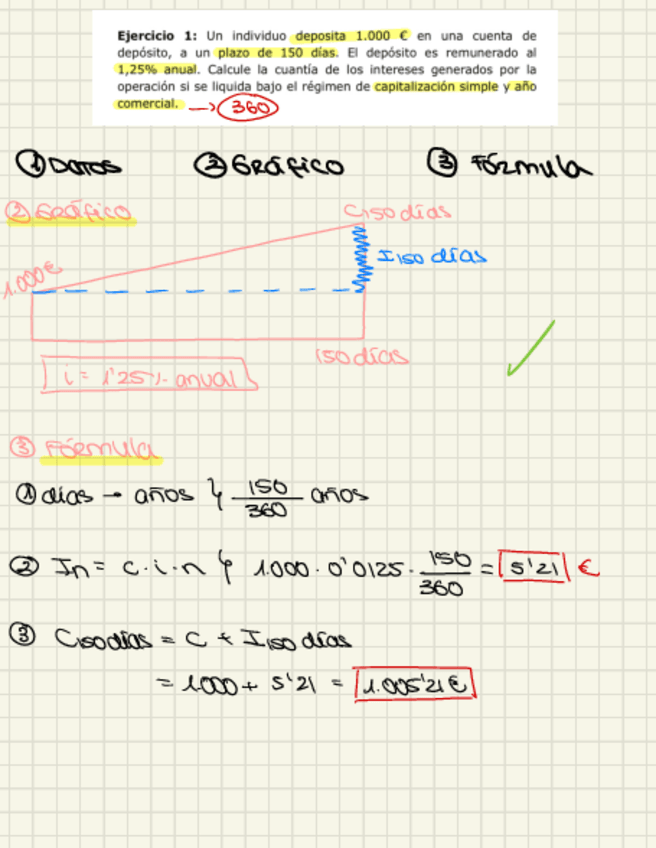 Ejercicio 1: Un individuo deposita 1.000 € en una cuenta de
depósito, a un plazo de 150 días. El depósito es remunerado al
1,25% anual. Calcule la cuantía de los intereses generados por la
operación si se liquida bajo el régimen de capitalización simple y año
comercial. → 360
① DATOS ② GRÁFICO ③ FÓRMULA
② GRÁFICO
C150 días
I150 días
1.000€
150 días
i = 1'25% anual
③ FÓRMULA
① días → años } 150/360 años
② In = C·i·n } 1.000 · 0'0125 · 150/360 = 5'21 €
③ C150 días = C + I150 días
= 1.000 + 5'21 = 1.005'21 €